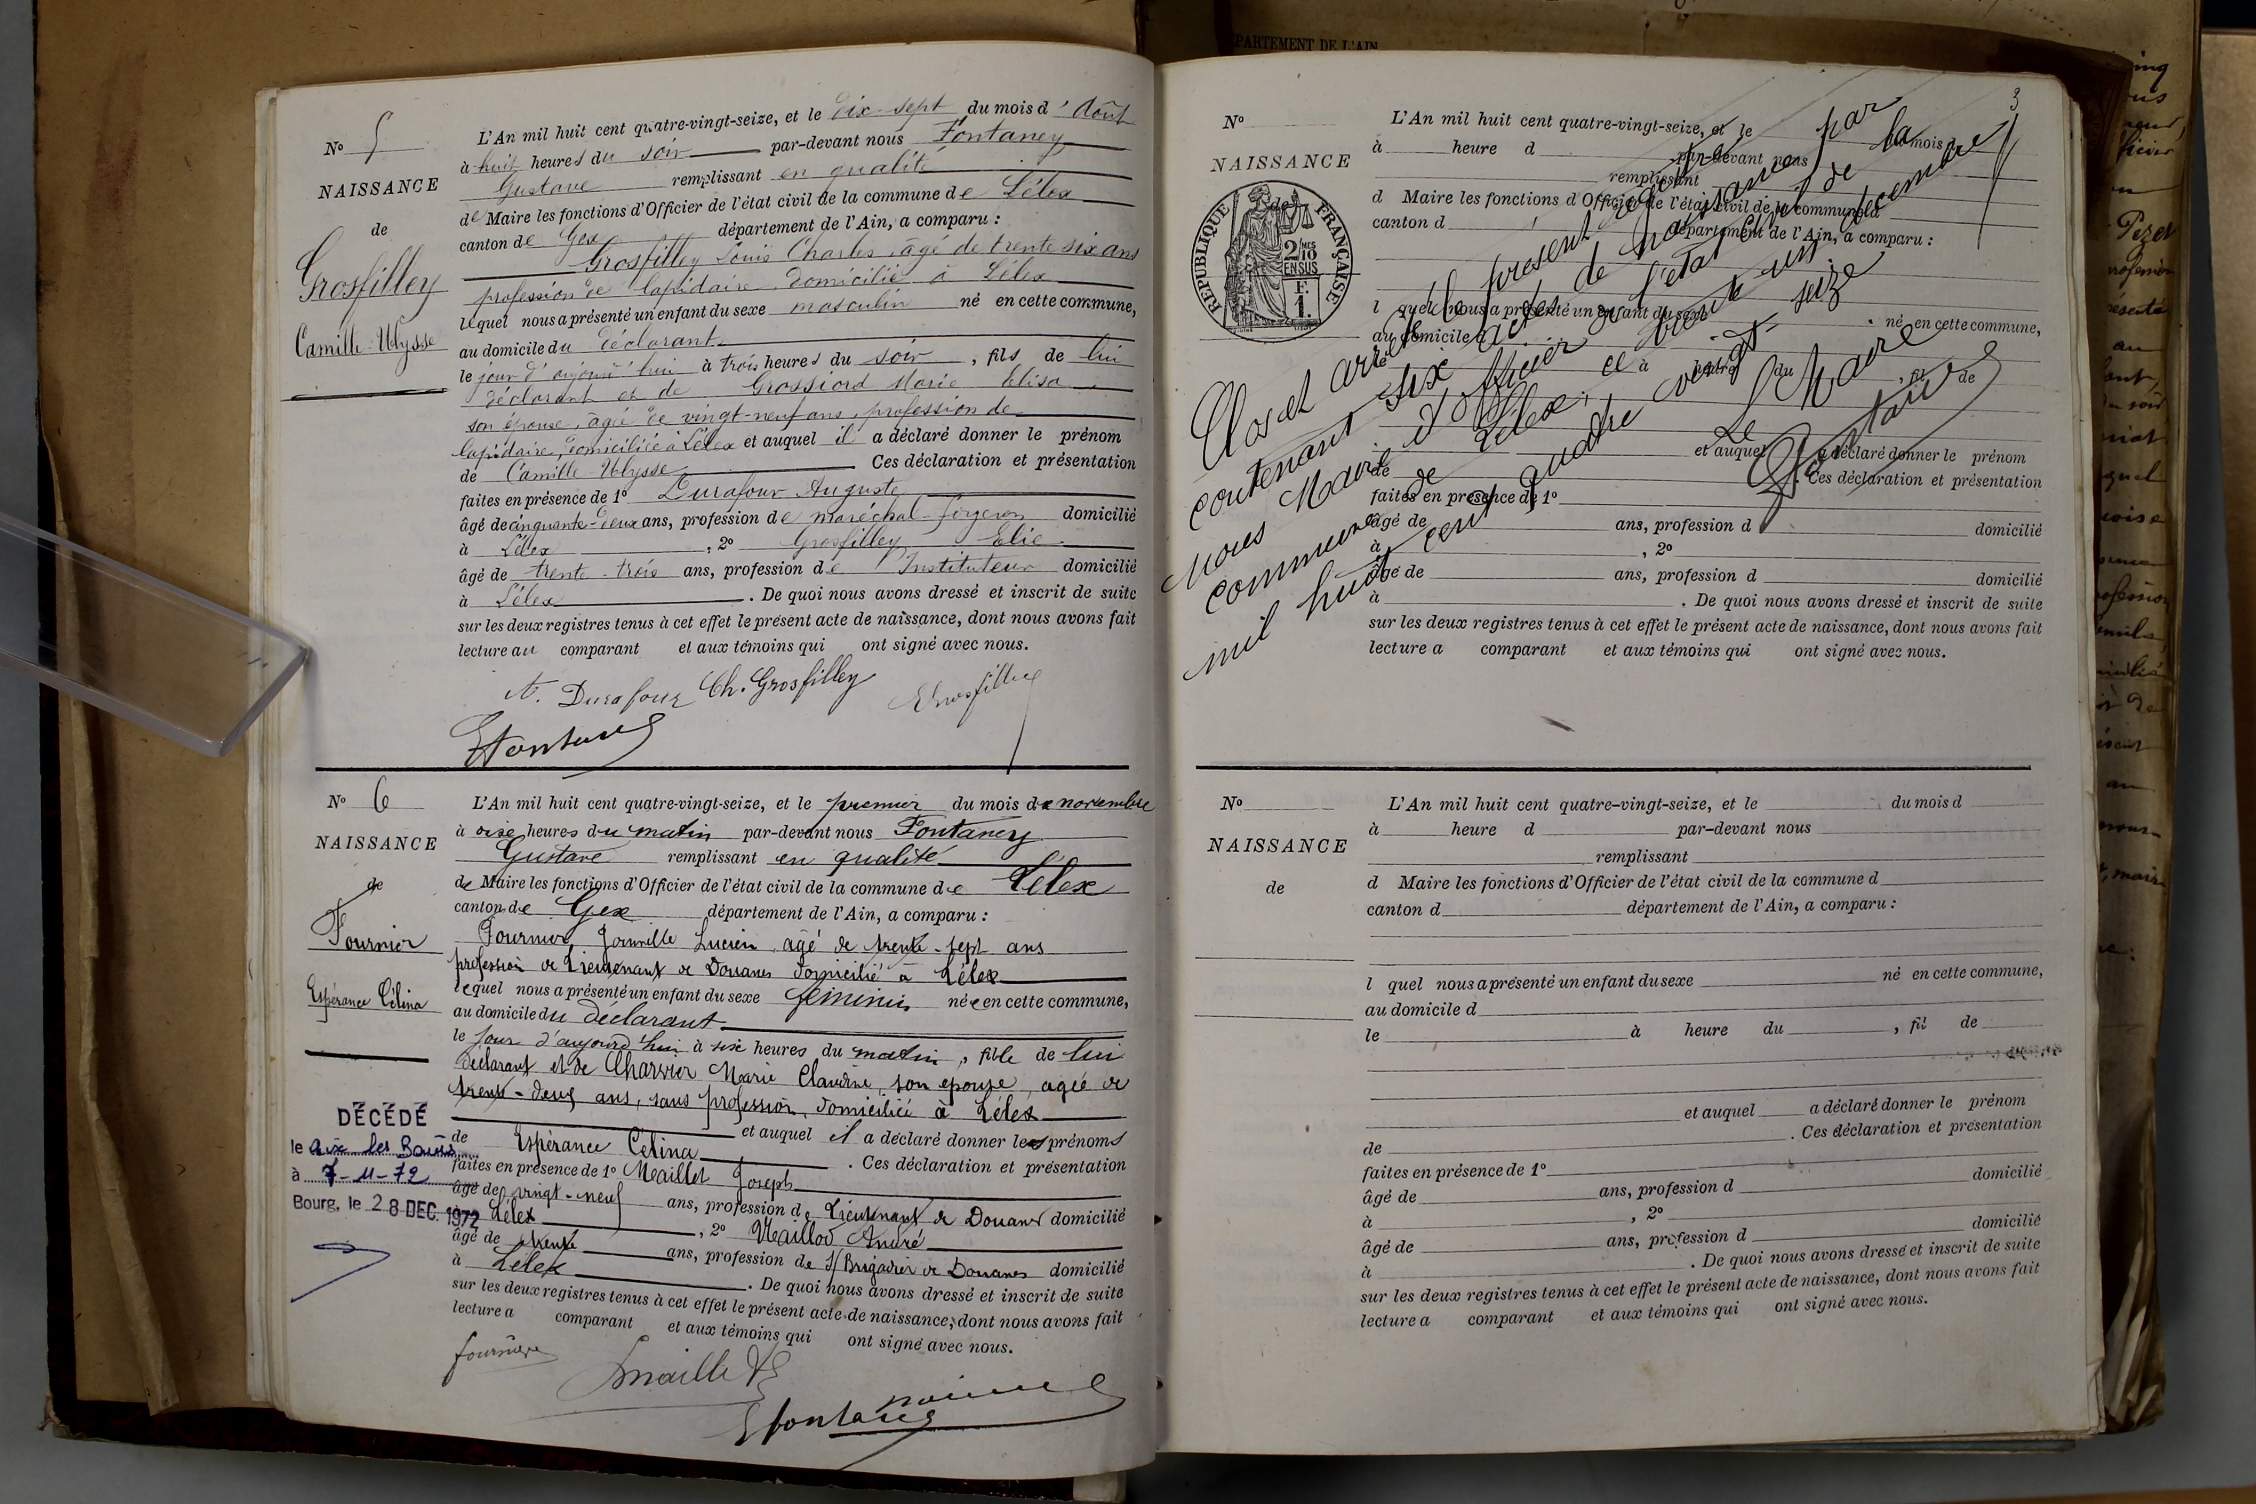 PARTEMENT DE L'AIN
No 5
NAISSANCE
de
Grosfilley
Camille-Ulysse
L'An mil huit cent quatre-vingt-seize, et le dix-sept du mois d'Août
à huit heures du soir par-devant nous Fontaney
Gustave remplissant en qualité
de Maire les fonctions d'Officier de l'état civil de la commune de Lélex
canton de Gex département de l'Ain, a comparu :
Grosfilley Louis Charles, âgé de trente six ans
profession de lapidaire domicilié à Lélex
lequel nous a présenté un enfant du sexe masculin né en cette commune,
au domicile du déclarant
le jour d'aujourd'hui à trois heures du soir, fils de lui
déclarant et de Grossiord Marie Elisa
son épouse, âgée de vingt-neuf ans, profession de
lapidaire, domiciliée à Lélex et auquel il a déclaré donner le prénom
de Camille-Ulysse Ces déclaration et présentation
faites en présence de 1o Durafour Auguste
âgé de cinquante-deux ans, profession de maréchal-forgeron domicilié
à Lélex, 2o Grosfilley Elie
âgé de trente-trois ans, profession de Instituteur domicilié
à Lélex. De quoi nous avons dressé et inscrit de suite
sur les deux registres tenus à cet effet le présent acte de naissance, dont nous avons fait
lecture au comparant et aux témoins qui ont signé avec nous.
A. Durafour Ch. Grosfilley EGrosfilley
GFontaney
No 6
NAISSANCE
de
Fournier
Espérance Célina
L'An mil huit cent quatre-vingt-seize, et le premier du mois de novembre
à onze heures du matin par-devant nous Fontaney
Gustave remplissant en qualité
de Maire les fonctions d'Officier de l'état civil de la commune de Lélex
canton de Gex département de l'Ain, a comparu :
Fournier Lucien, agé de trente-sept ans
profession de Lieutenant de Douanes domicilié à Lélex
lequel nous a présenté un enfant du sexe féminin née en cette commune,
au domicile du déclarant
le jour d'aujourd'hui à six heures du matin, fille de lui
déclarant et de Charvier Marie Claudine, son épouse, agée de
trente-deux ans, sans profession, domiciliée à Lélex
et auquel il a déclaré donner les prénoms
de Espérance Célina. Ces déclaration et présentation
faites en présence de 1o Maillet Joseph
âgé de vingt-neuf ans, profession de Lieutenant de Douanes domicilié
à Lélex, 2o André
âgé de trente ans, profession de S/Brigadier de Douanes domicilié
à Lélex. De quoi nous avons dressé et inscrit de suite
sur les deux registres tenus à cet effet le présent acte de naissance, dont nous avons fait
lecture a comparant et aux témoins qui ont signé avec nous.
DÉCÉDÉ
le Aix les Bains
à 7-11-72
Bourg, le 28 DEC. 1972
fournier
Jmaillet
GFontaney
3
No
NAISSANCE
de
RÉPUBLIQUE FRANÇAISE
2/10 MES
EN SUS
F.
1.
L'An mil huit cent quatre-vingt-seize, et le du mois
à heure d par-devant nous
remplissant
d Maire les fonctions d'Officier de l'état civil de la commune d
canton d département de l'Ain, a comparu :
l quel nous a présenté un enfant du sexe né en cette commune,
au domicile d
le à heure du, fil de
et auquel a déclaré donner le prénom
de. Ces déclaration et présentation
faites en présence de 1o
âgé de ans, profession d domicilié
à, 2o
âgé de ans, profession d domicilié
à. De quoi nous avons dressé et inscrit de suite
sur les deux registres tenus à cet effet le présent acte de naissance, dont nous avons fait
lecture a comparant et aux témoins qui ont signé avec nous.
Clos et arrêté le présent registre
contenant six actes de naissance par
nous Maire d'officier de l'état civil de la
commune de Lélex, ce trente un décembre
mil huit cent quatre vingt seize
Le Maire
GFontaney
No
NAISSANCE
de
L'An mil huit cent quatre-vingt-seize, et le du mois d
à heure d par-devant nous
remplissant
d Maire les fonctions d'Officier de l'état civil de la commune d
canton d département de l'Ain, a comparu :
l quel nous a présenté un enfant du sexe né en cette commune,
au domicile d
le à heure du, fil de
et auquel a déclaré donner le prénom
de. Ces déclaration et présentation
faites en présence de 1o
âgé de ans, profession d domicilié
à, 2o
âgé de ans, profession d domicilié
à. De quoi nous avons dressé et inscrit de suite
sur les deux registres tenus à cet effet le présent acte de naissance, dont nous avons fait
lecture a comparant et aux témoins qui ont signé avec nous.